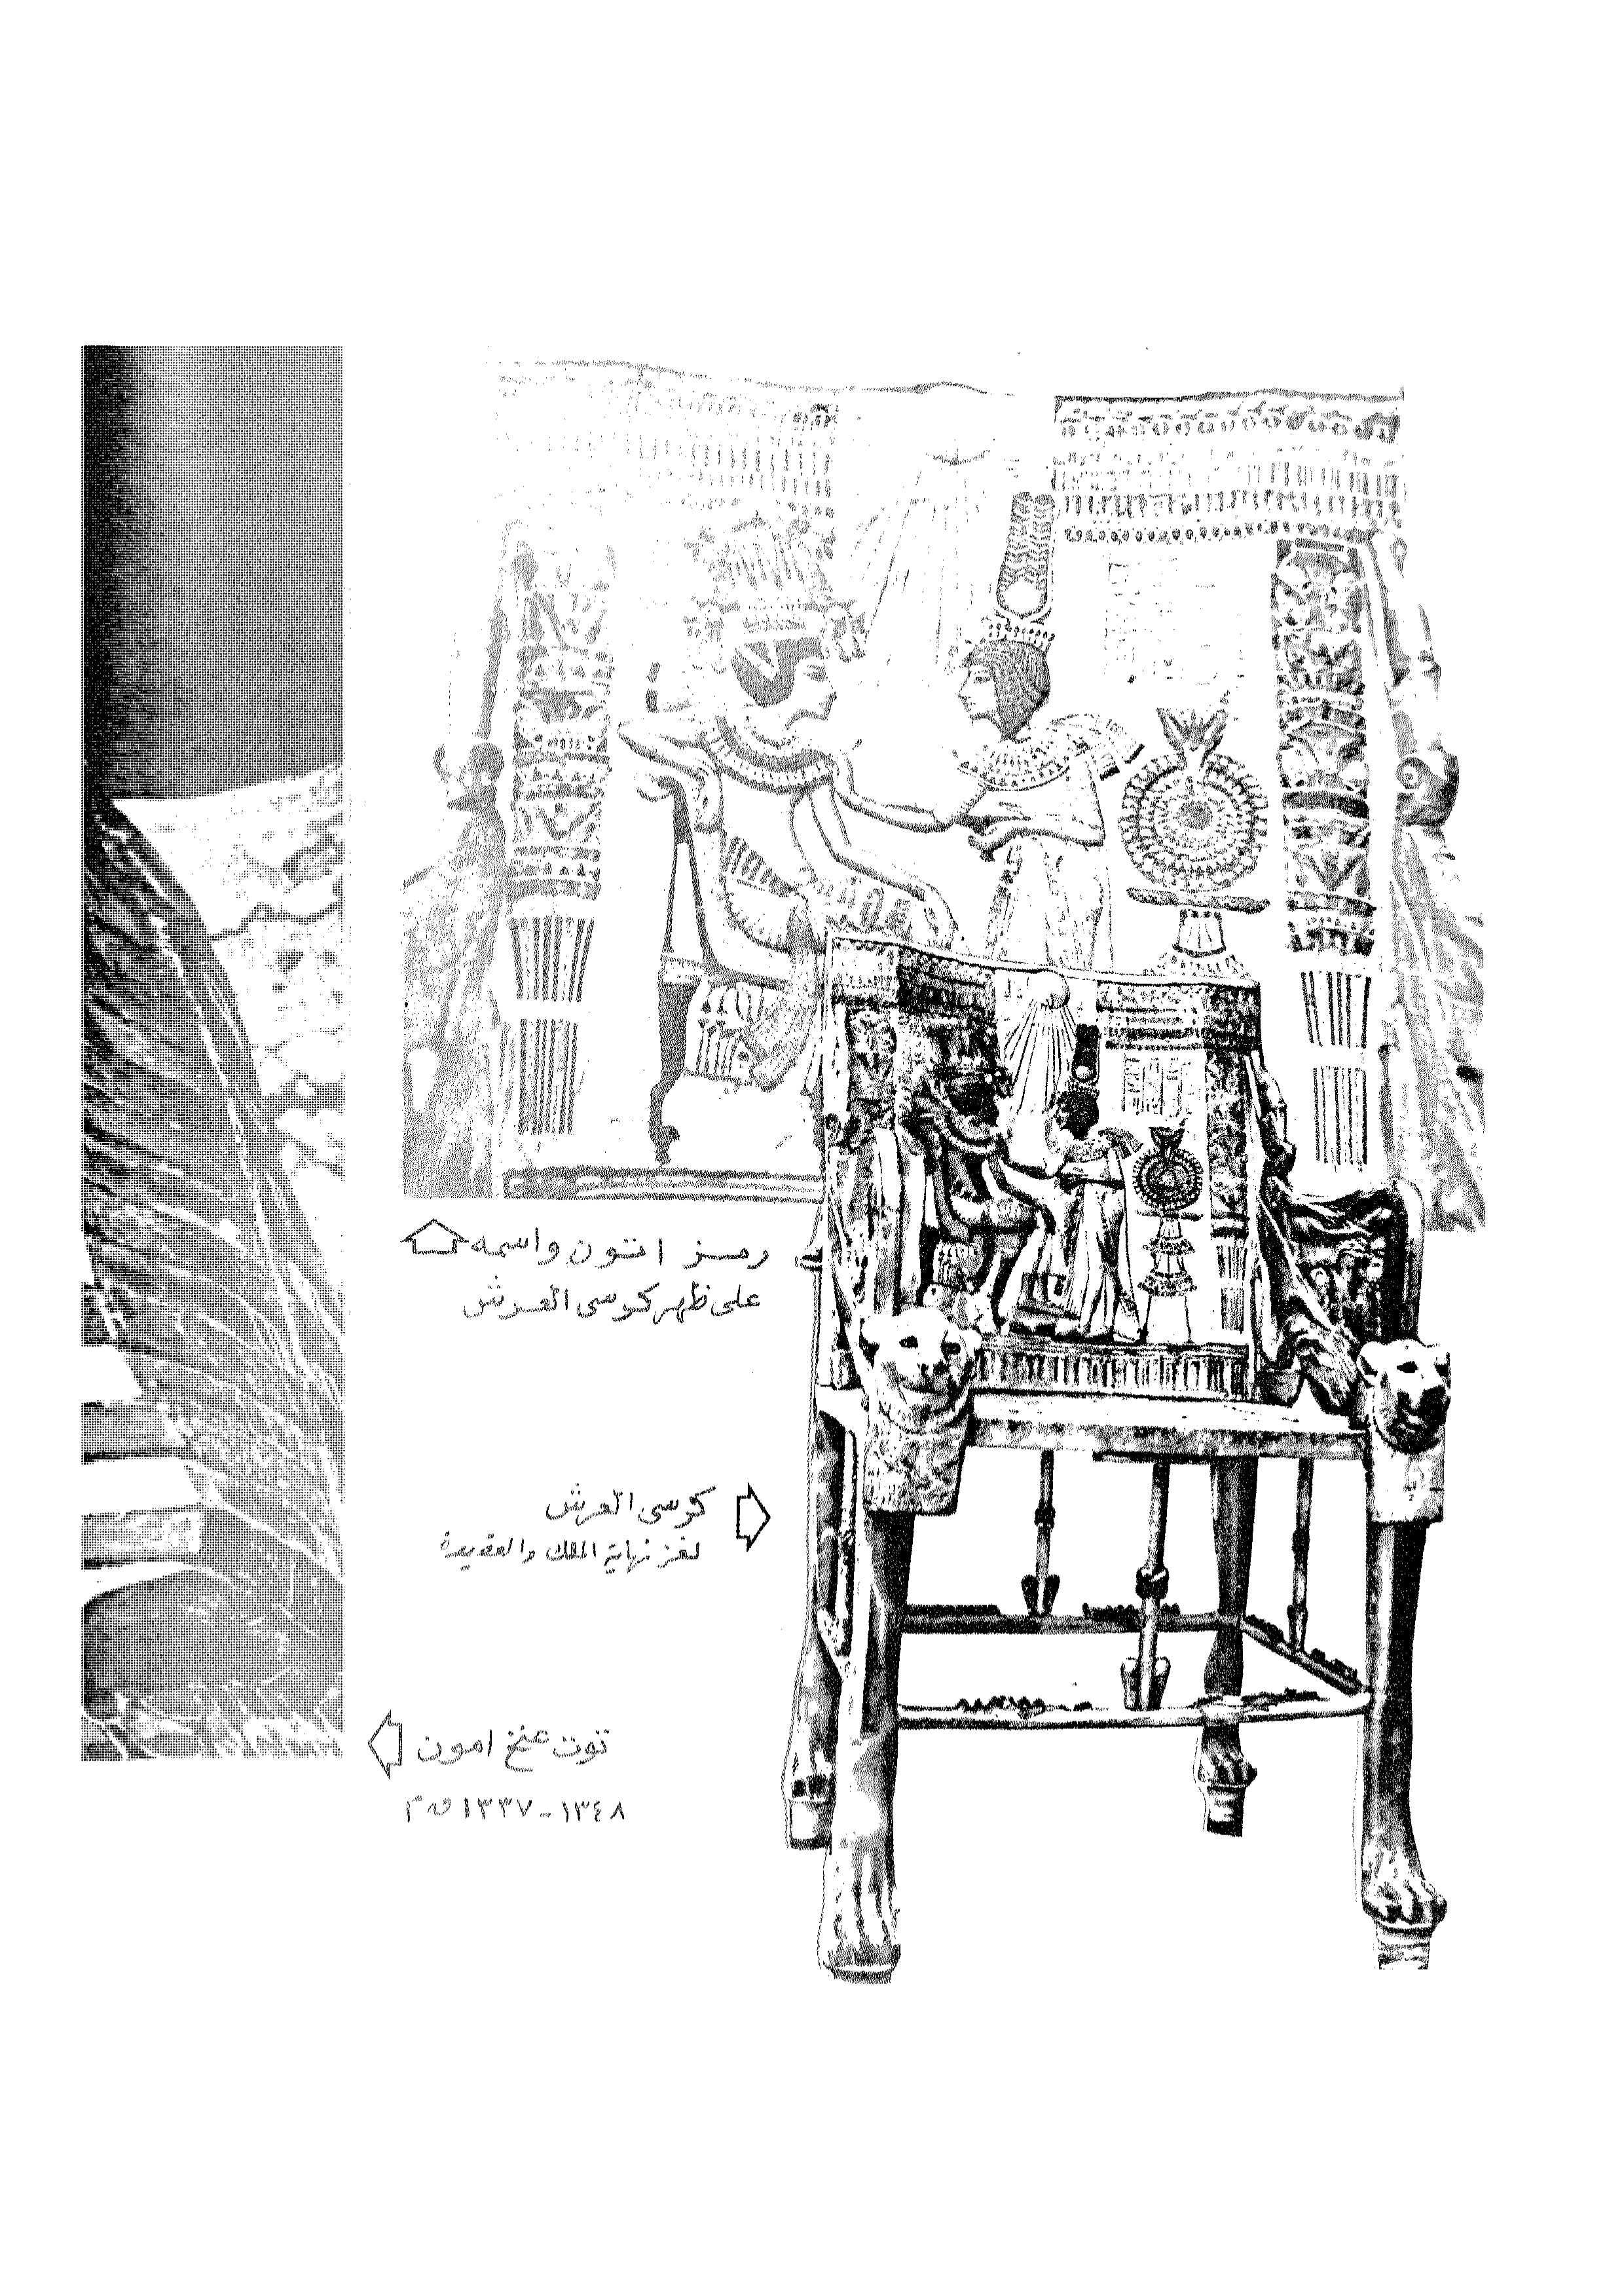 رمز اتون واسمه
على ظهر كرسى العرش
كرسى العرش
لغز نهاية الملك والعقيدة
توت عنخ امون
١٣٤٨-١٣٣٧ ق م